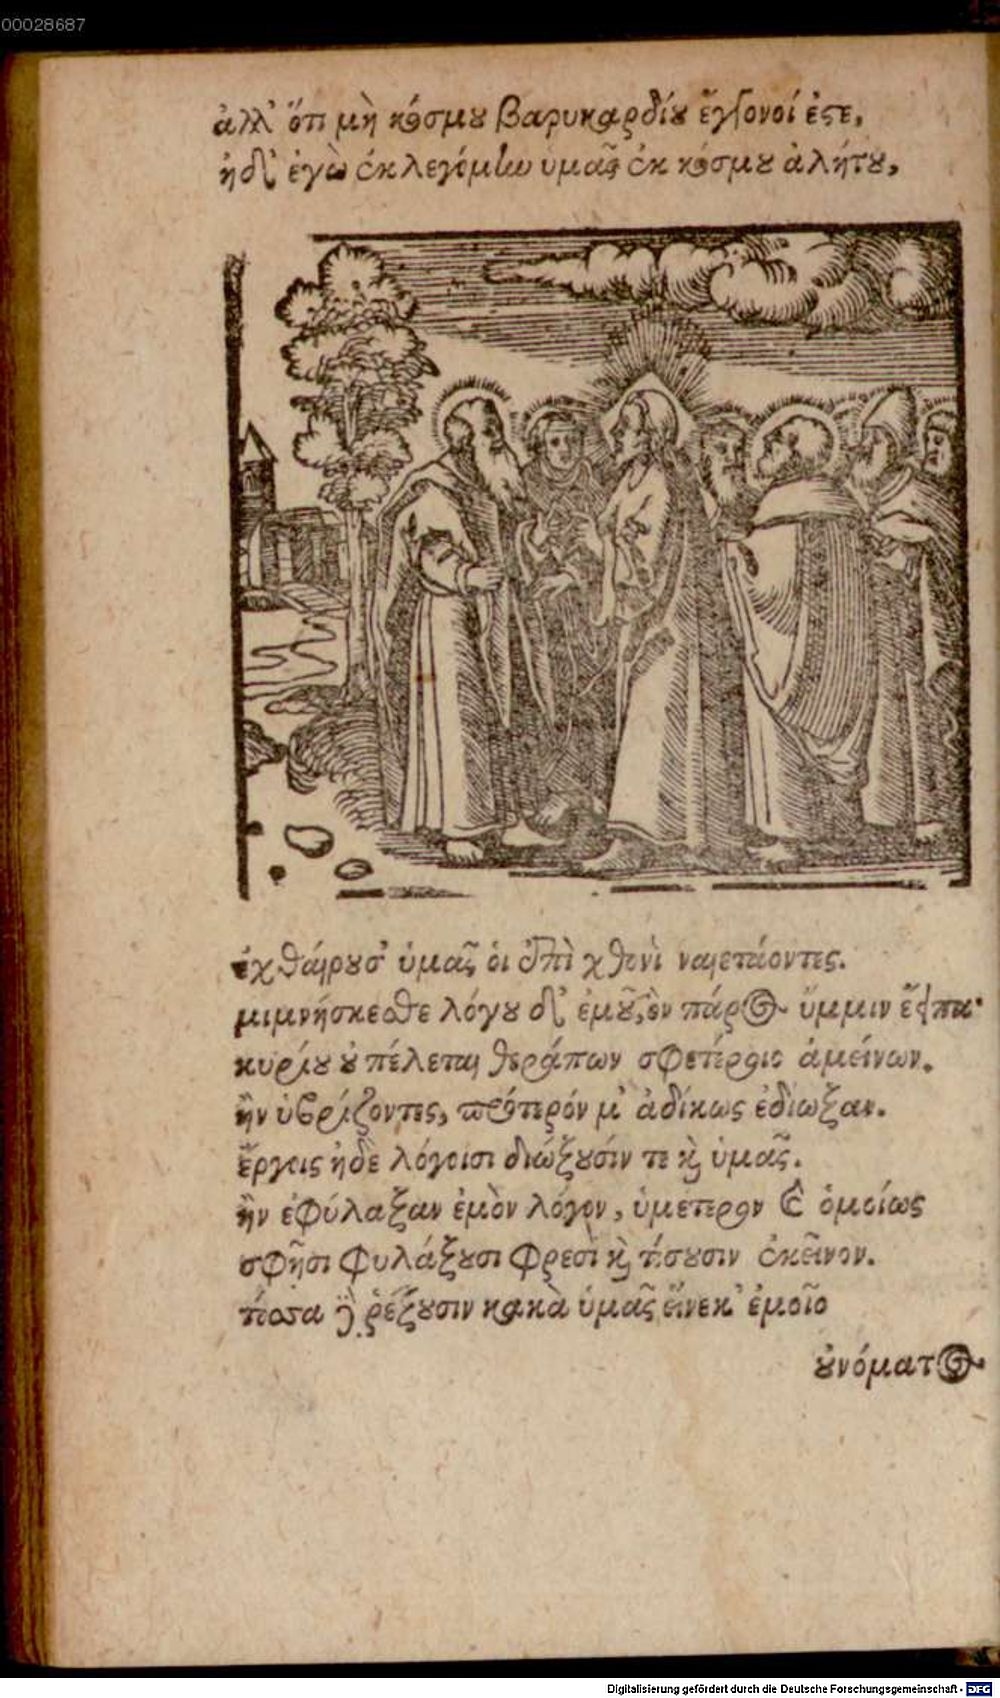 00028687
ἀλλ' ὅτι μὴ κόσμου βαρυκαρδίου ἔγγονοί ἐστε,
ἠδ' ἐγὼ ἐκλεγόμην ὑμᾶς ἐκ κόσμου ἀλήτου,
ἐχθαίρουσ' ὑμᾶς οἱ ἐπὶ χθονὶ ναιετάοντες.
μιμνήσκεσθε λόγου δ' ἐμοῦ, ὃν πάρος ὔμμιν
κυρίου οὐ πέλεται θεράπων σφετέροιο ἀμείνων.
ἢν ὑβρίζοντες, πρότερόν μ' ἀδίκως ἐδίωξαν.
ἔργοις ἠδὲ λόγοισι διώξουσίν τε καὶ ὑμᾶς.
ἢν ἐφύλαξαν ἐμὸν λόγον, ὑμέτερον καὶ ὁμοίως
σφῇσι φυλάξουσι φρεσὶ καὶ τίσουσιν ἐκεῖνον.
πόσα ῥέξουσιν κακὰ ὑμᾶς εἵνεκ' ἐμοῖο
οὐνόματος
Digitalisierung gefördert durch die Deutsche Forschungsgemeinschaft - DFG